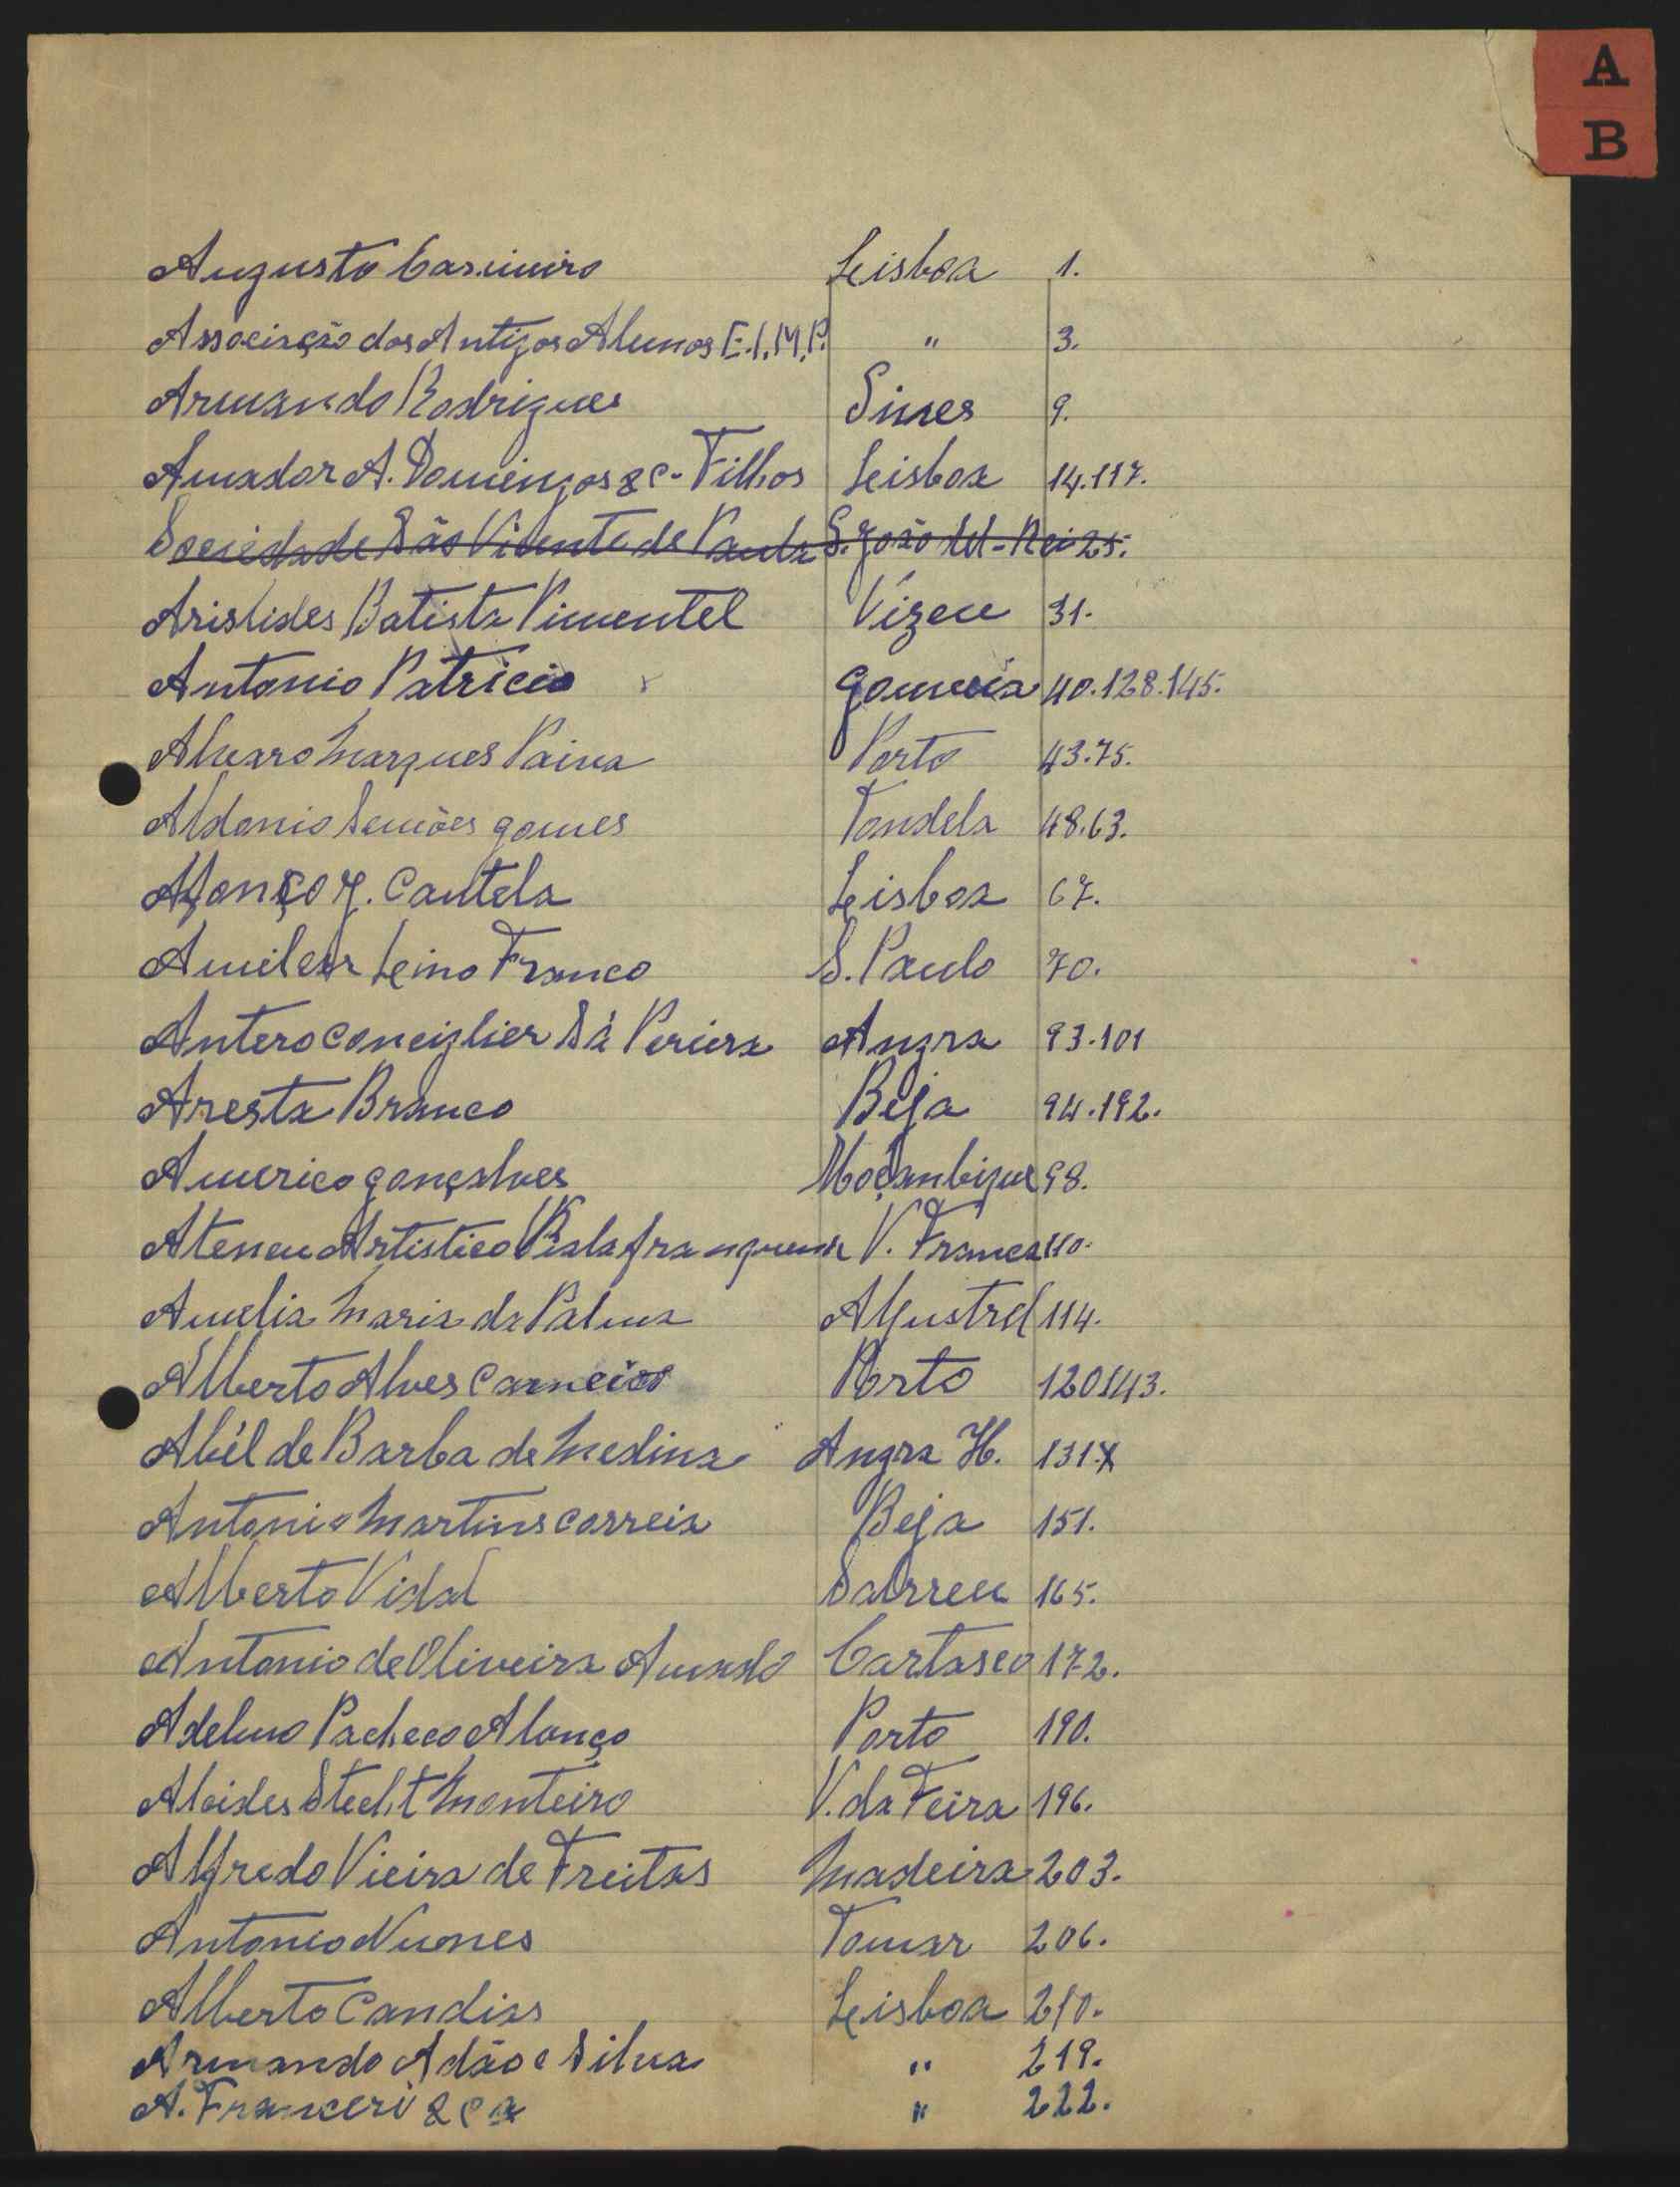 A
B
Augusto Casimiro Lisboa 1.
Associação dos Antigos Alunos E.I.M.P. " 3.
Armando Rodrigues Sines 9.
Amador A. Domingos & C- Filhos Lisboa 14.117.
Sociedade São Vicente de Paula S. João del-Rei 25.
Aristides Batista Pimentel Vizeu 31.
Antonio Patricio Gouveia 40.128.145.
Alvaro Marques Paiva Porto 43.75.
Aldonio Simões Gomes Tondela 48.63.
Afonço J. Cautela Lisboa 67.
Amilcar Lino Franco S. Paulo 70.
Antero Conciglier Sá Pereira Angra 93.101
Aresta Branco Beja 94.192.
Americo Gonçalves Moçambique 98.
Ateneu Artistico Vilafranquense V. Franca 110.
Amelia Maria da Palma Aljustrel 114.
Alberto Alves Carneiro Porto 120.143.
Abél de Barba de Medina Angra H. 131.
Antonio Martins Correia Beja 151.
Alberto Vidal Salreu 165.
Antonio de Oliveira Amado Cartaxo 172.
Adelino Pacheco Alonço Porto 190.
Alcides Stecht Monteiro V. da Feira 196.
Alfredo Vieira de Freitas Madeira 203.
Antonio Nunes Tomar 206.
Alberto Candias Lisboa 210.
Armando Adão e Silva " 219.
A. Franceri & Ca " 222.